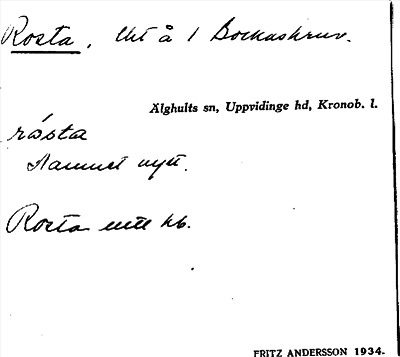 Rosta, Uht å 1 Bockaskruv.
Älghults sn, Uppvidinge hd, Kronob. l.
råsta
Namnet nytt.
Rosta enl. kb.
FRITZ ANDERSSON 1934.